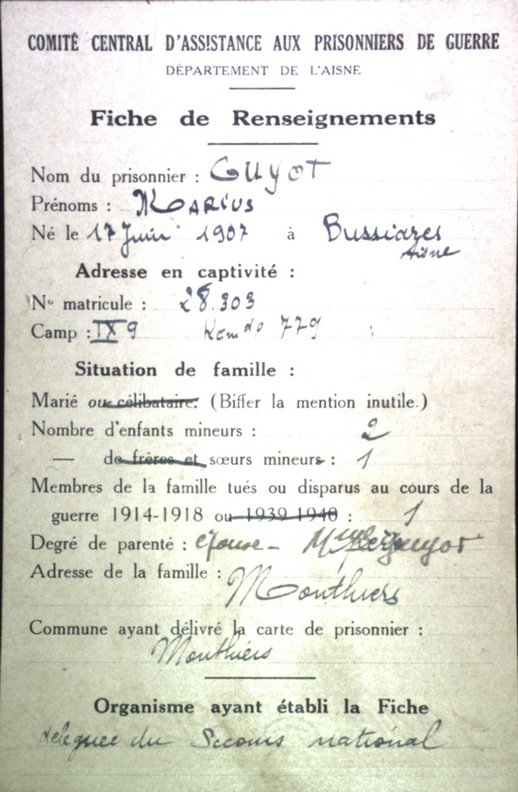 COMITÉ CENTRAL D'ASSISTANCE AUX PRISONNIERS DE GUERRE
DÉPARTEMENT DE L'AISNE
Fiche de Renseignements
Nom du prisonnier : GUYOT
Prénoms : MARIUS
Né le 17 Juin 1907 à Bussiares
Aisne
Adresse en captivité :
No matricule : 28.303
Camp : IX 9 Komdo 779
Situation de famille :
Marié ou célibataire. (Biffer la mention inutile.)
Nombre d'enfants mineurs : 2
— de frères et sœurs mineurs : 1
Membres de la famille tués ou disparus au cours de la
guerre 1914-1918 ou 1939-1940 : 1
Degré de parenté : épouse - Mme Guyot
Adresse de la famille : Monthiers
Commune ayant délivré la carte de prisonnier :
Monthiers
Organisme ayant établi la Fiche
déleguée du Secours national